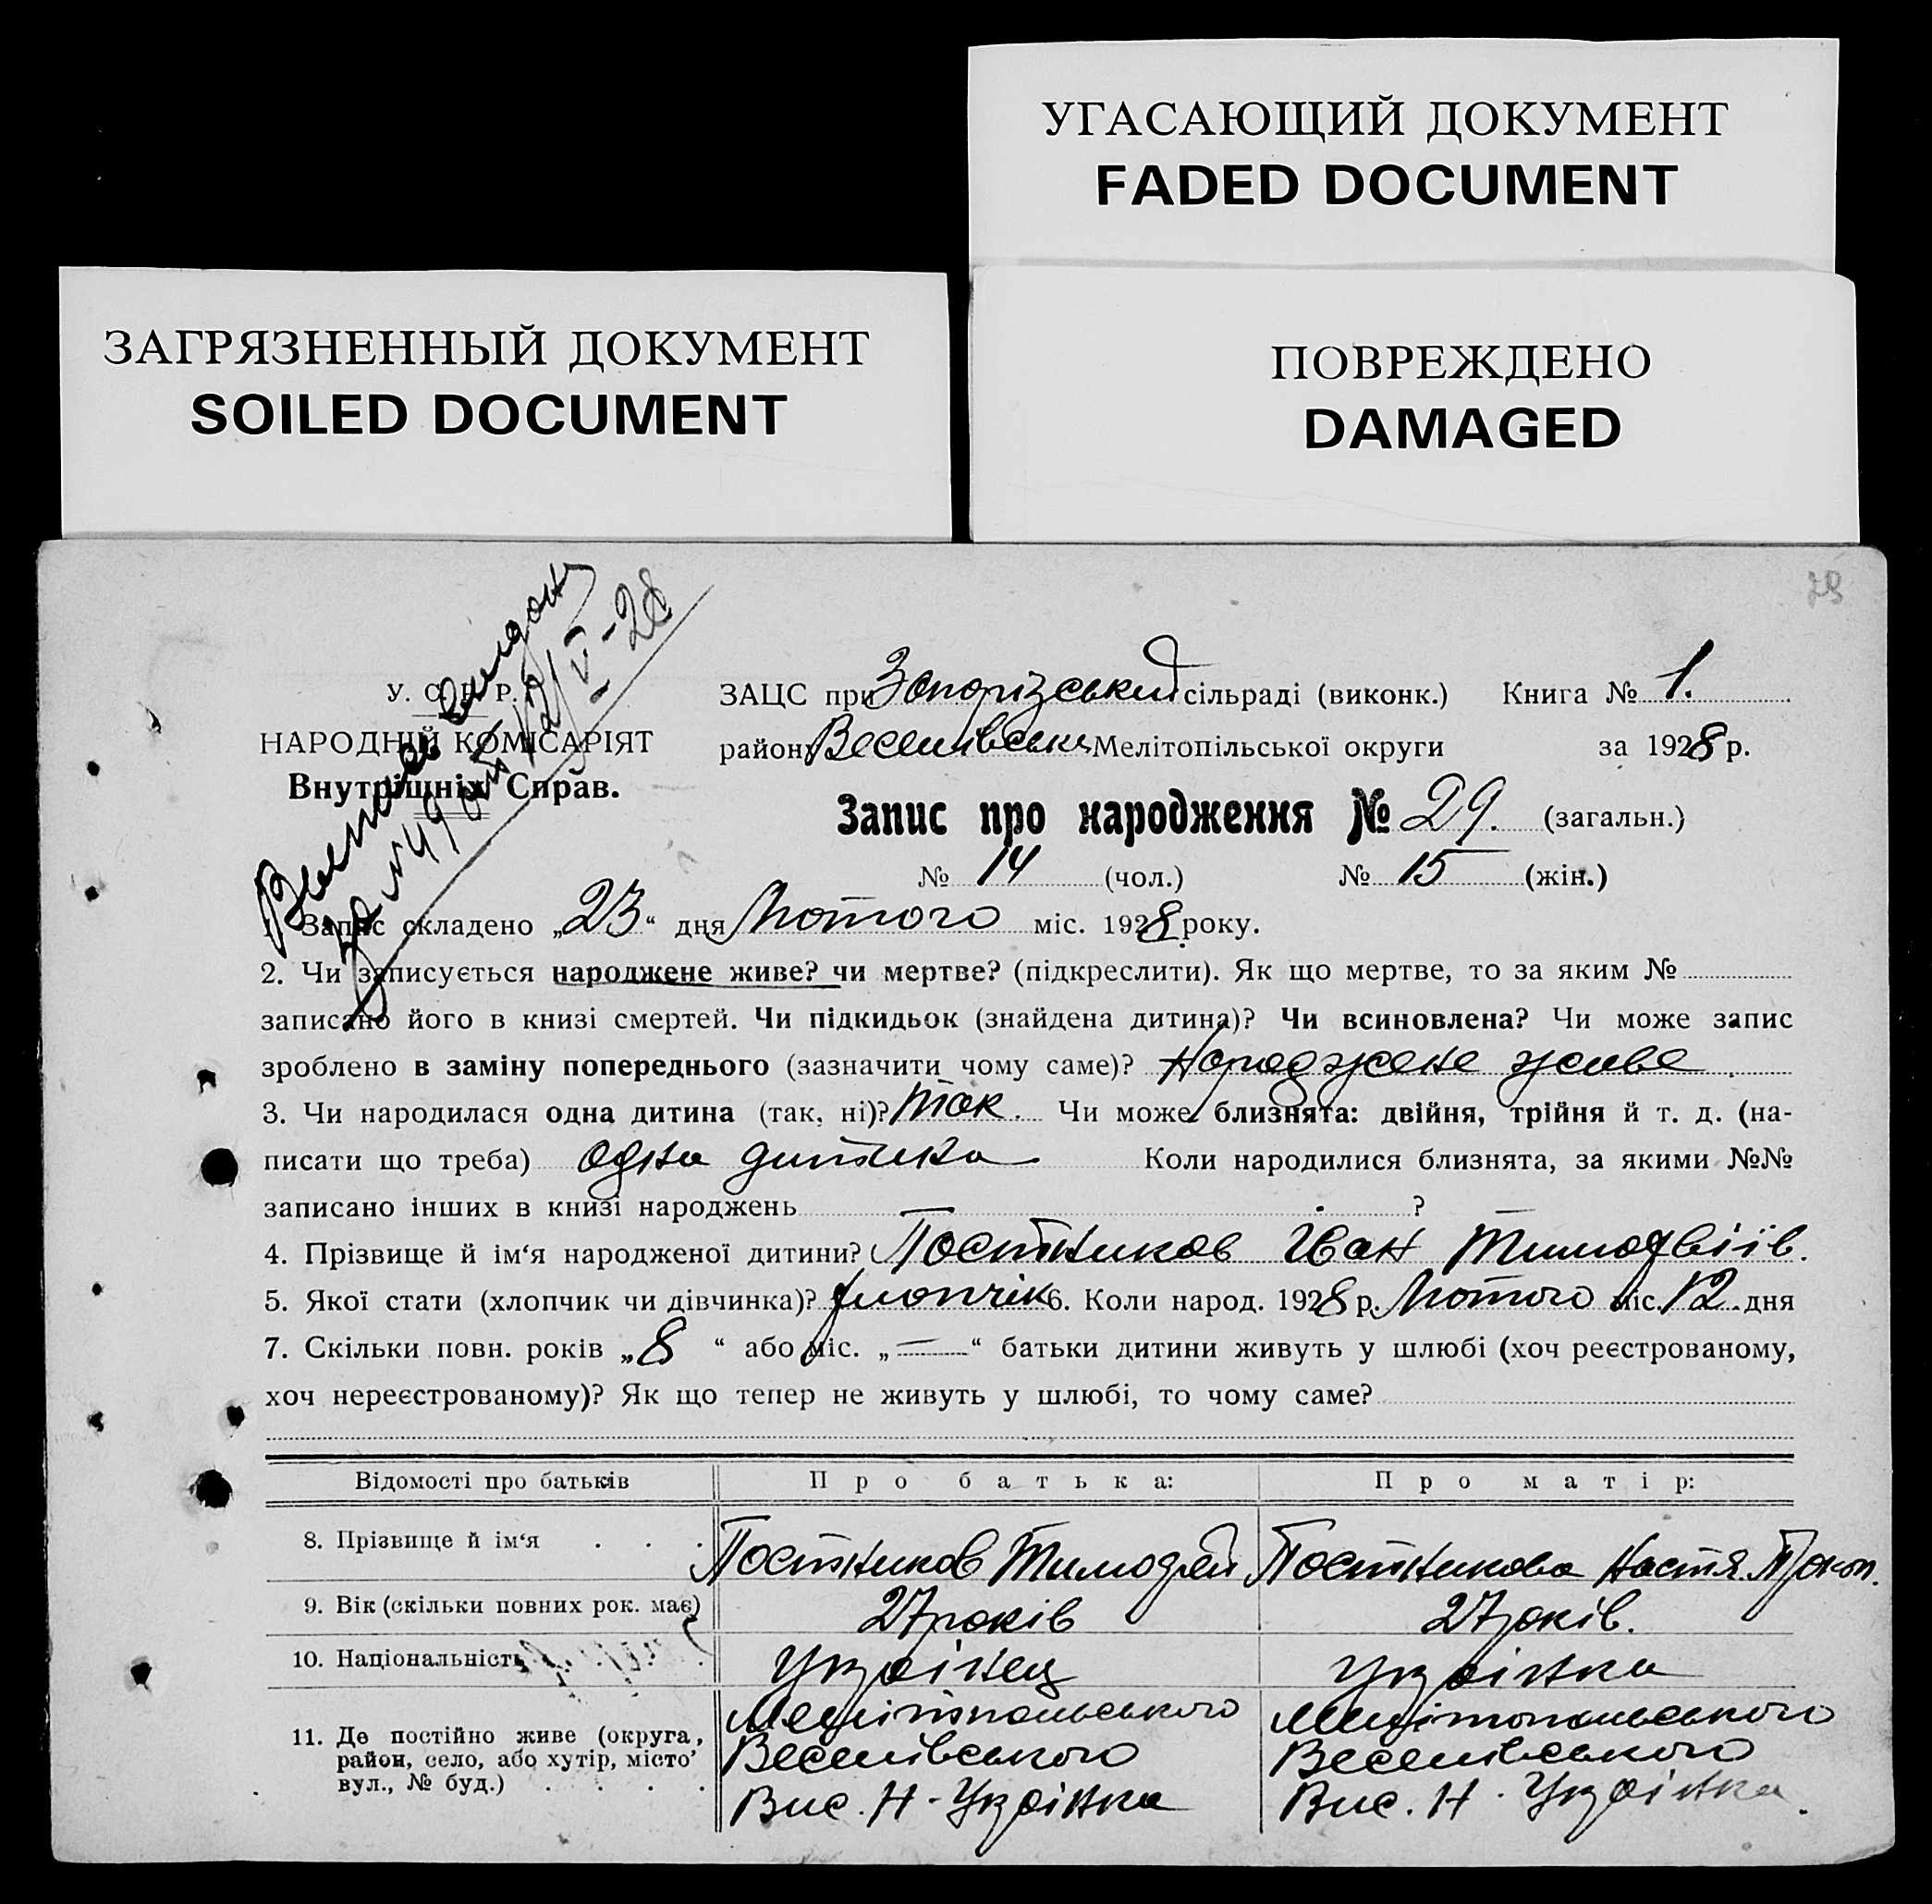 УГАСАЮЩИЙ ДОКУМЕНТ
FADED DOCUMENT
ЗАГРЯЗНЕННЫЙ ДОКУМЕНТ
SOILED DOCUMENT
ПОВРЕЖДЕНО
DAMAGED
У. С. Р. Р.
НАРОДНІЙ КОМІСАРІЯТ
Внутрішніх Справ.
за № 49 от 12/V-28
ЗАЦС при Запорізький сільраді (виконк.) Книга № 1.
району Веселівськ Мелітопільської округи за 1928 р.
Запис про народження № 29. (загальн.)
№ 14 (чол.) № 15 (жін.)
1. Запис складено „23“ дня Лютого міс. 1928 року.
2. Чи записується народжене живе? чи мертве? (підкреслити). Як що мертве, то за яким №
записано його в книзі смертей. Чи підкидьок (знайдена дитина)? Чи всиновлена? Чи може запис
зроблено в заміну попереднього (зазначити чому саме)? Народжене живе
3. Чи народилася одна дитина (так, ні)? Так. Чи може близнята: двійня, трійня й т. д. (на-
писати що треба) одна дитина Коли народилися близнята, за якими №№
записано інших в книзі народжень ?
4. Прізвище й ім‘я народженої дитини? Постников Іван Тимофвіїв.
5. Якої стати (хлопчик чи дівчинка)? хлопчік 6. Коли народ. 1928 р. Лютого міс. 12 дня
7. Скільки повн. років „8“ або міс. „—“ батьки дитини живуть у шлюбі (хоч реєстрованому,
хоч нереєстрованому)? Як що тепер не живуть у шлюбі, то чому саме?
Відомості про батьків Про батька: Про матір:
8. Прізвище й ім‘я . . . Постников Тимофей Постникова Настя Прокоп.
9. Вік (скільки повних рок. має) 27 років 27 років.
10. Національність Українец Українка
11. Де постійно живе (округа, район, село, або хутір, місто’ вул., № буд.) . . . .
Мелітопольського Мелітопольського
Веселівського Веселівського
Вис. Н-Українка Вис. Н-Українка.